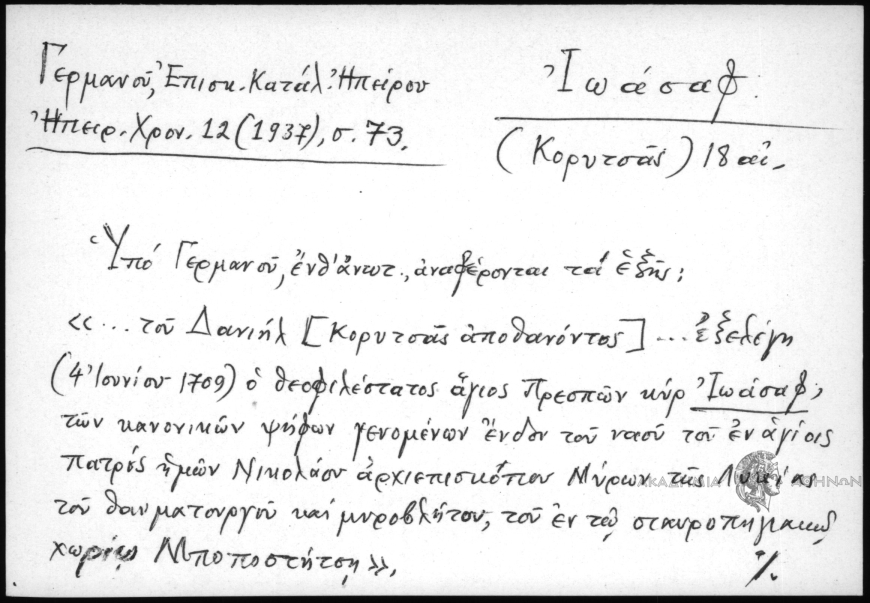 Γερμανοῦ, Ἐπισκ. Κατάλ. Ἠπείρου
Ἠπειρ. Χρον. 12 (1937), σ. 73.
Ἰωάσαφ.
(Κορυτσᾶς) 18 αἰ.
Ὑπό Γερμανοῦ, ἔνθ' ἀνωτ., ἀναφέρονται τά ἑξῆς:
«... τοῦ Δανιήλ [Κορυτσᾶς ἀποθανόντος] ... ἐξελέγη
(4 Ἰουνίου 1709) ὁ θεοφιλέστατος ἅγιος Πρεσπῶν κύρ Ἰωάσαφ,
τῶν κανονικῶν ψήφων γενομένων ἔνδον τοῦ ναοῦ τοῦ ἐν ἁγίοις
πατρός ἡμῶν Νικολάου ἀρχιεπισκόπου Μύρων τῆς Λυκίας
τοῦ θαυματουργοῦ καί μυροβλήτου, τοῦ ἐν τῷ σταυροπηγιακῷ
χωρίῳ Μποποστήτσῃ».
·/.
ΑΚΑΔΗΜΙΑ ΑΘΗΝΩΝ